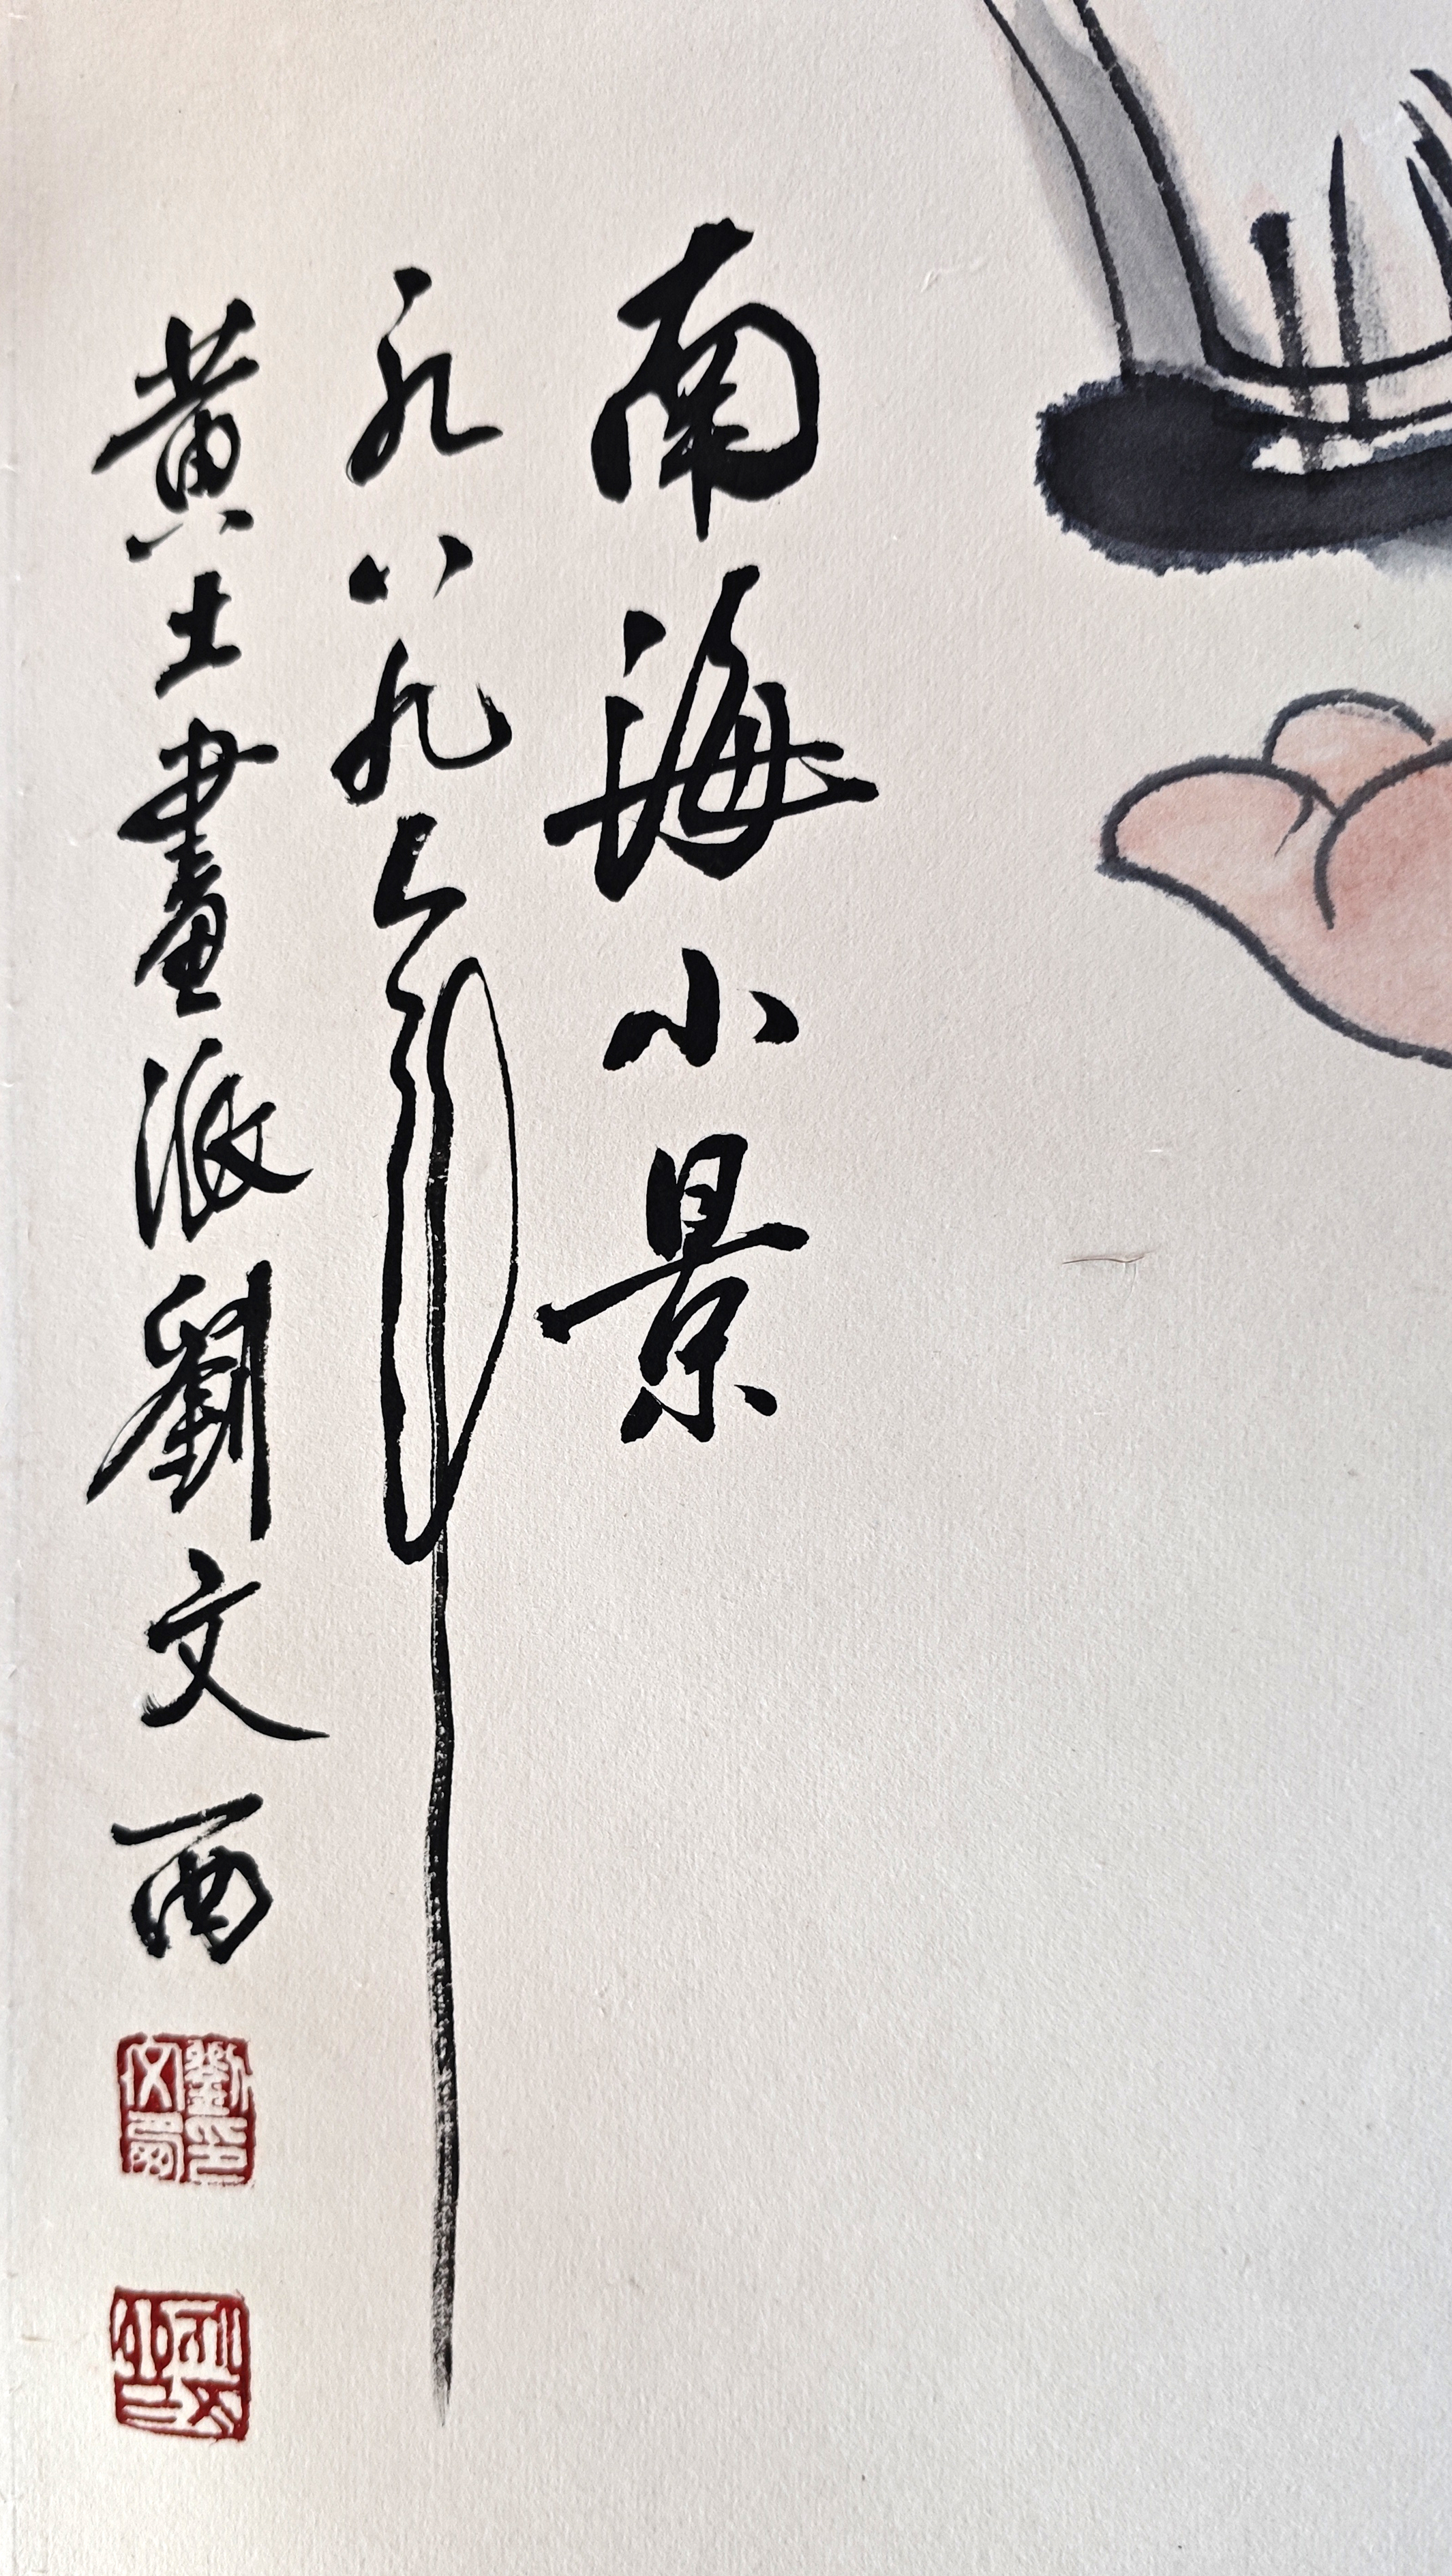 南海小景
一九八九年
黄土畫派劉文西
劉印文西